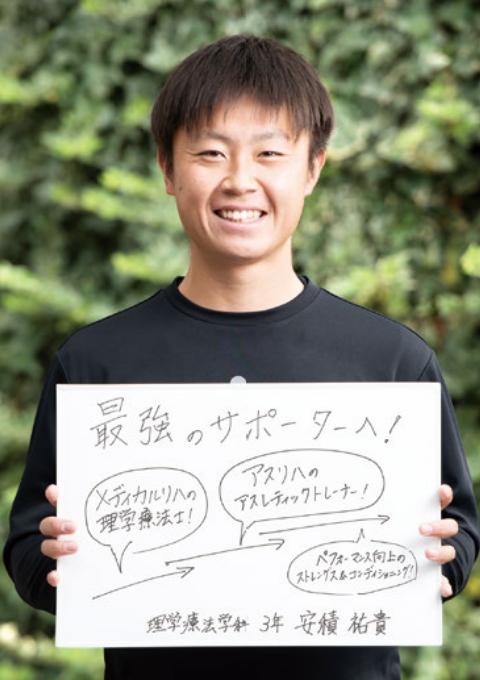 最強のサポーターへ!
メディカルリハの
理学療法士!
アスリハの
アスレティックトレーナー!
パフォーマンス向上の
ストレングス&コンディショニング!
理学療法学科 3年 安積 祐貴